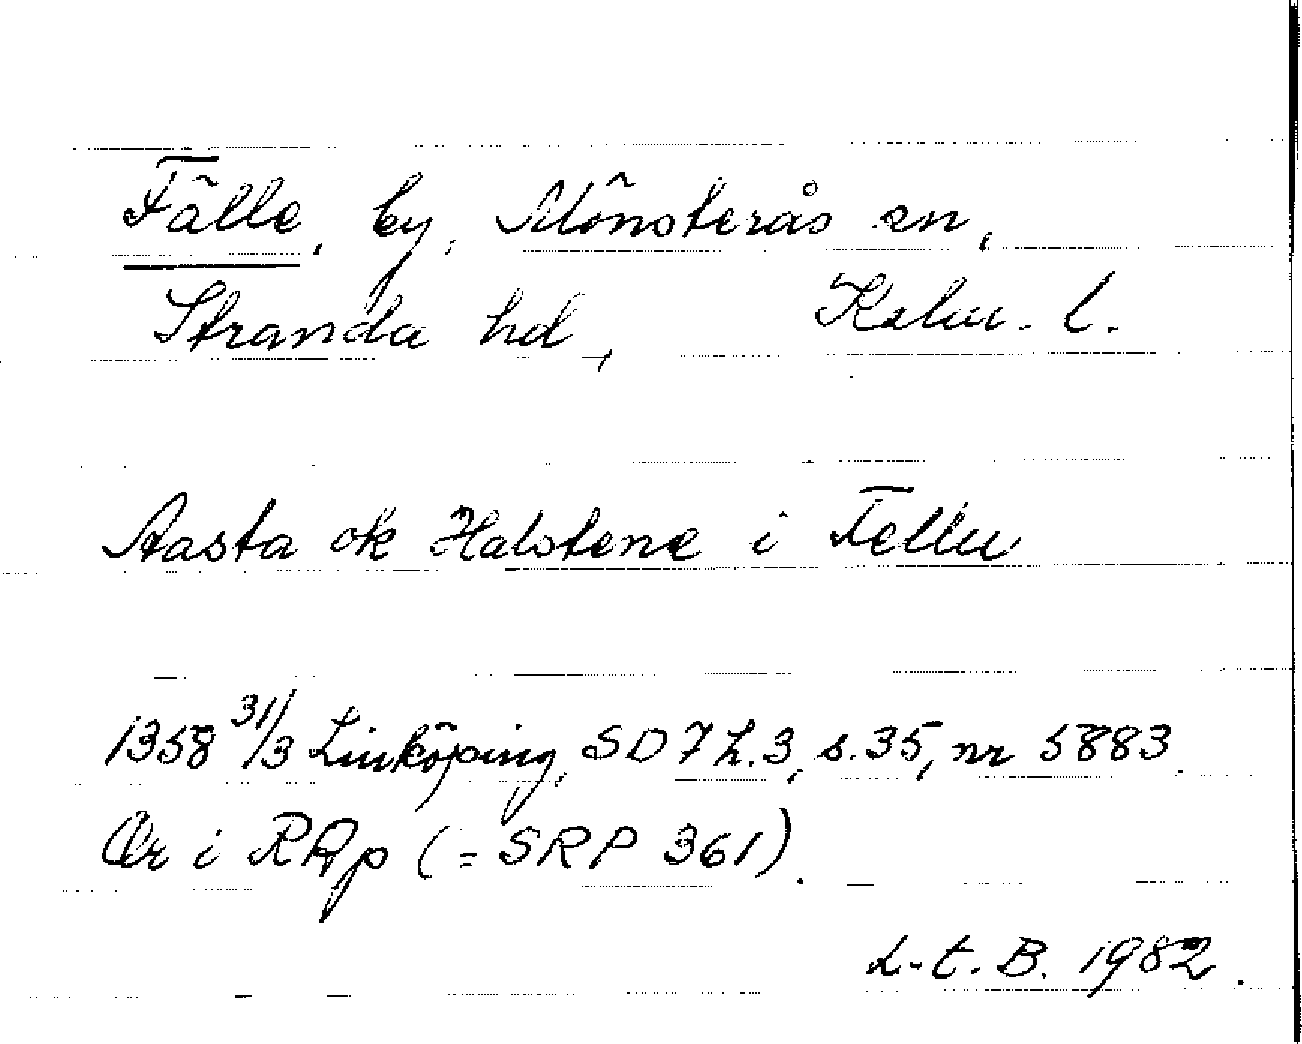 Fälle, by, Mönsterås sn,
Stranda hd, Kalm. l.
Aasta ok Halstene i Fellu
1358 31/3 Linköping, SD 7 h.3, s.35, nr 5883.
Or i RAp (=SRP 361).
L.t.B. 1982.